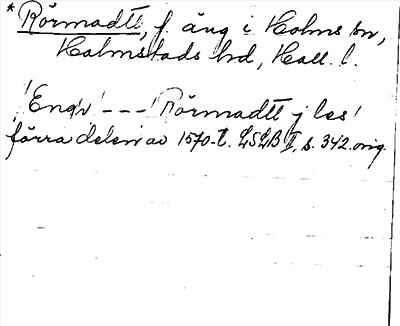 * Rörmadtt, f. äng i Holms sn,
Halmstads hd, Hall. l.
'Engr' --- 'Rörmadtt j les'
förra delen av 1570-t. LSLB II, s. 342. orig.